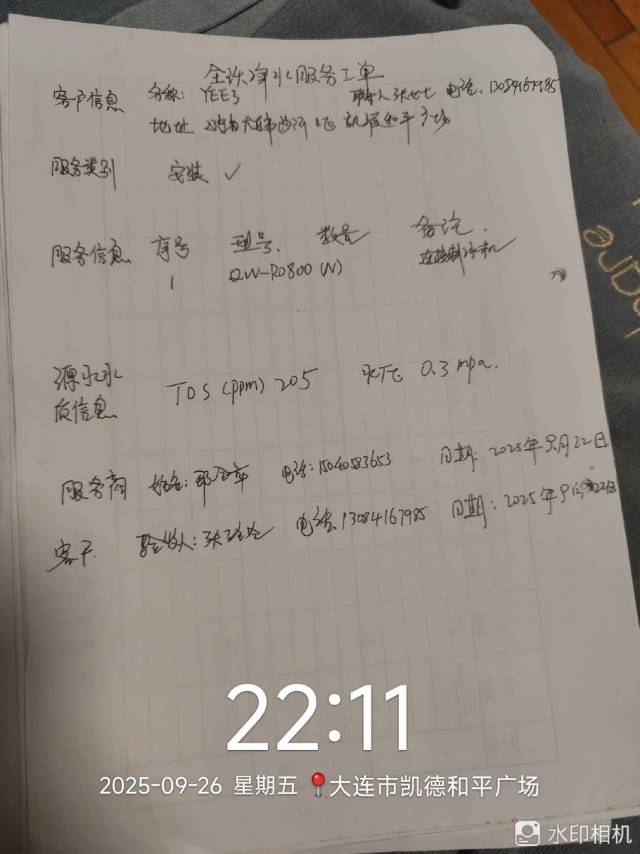 净水服务工单
客户信息 名称: YEE3 联系人 张 电话: 13084167985
地址 大连市沙河口区 凯德和平广场
服务类别 安装 ✓
服务信息 序号 型号 数量 备注
1 QW-RO800(W) 连接制冰机
源水水质信息 TDS (ppm) 205 水压 0.3 mpa
服务商 姓名: 电话: 15040583653 日期: 2025年9月22日
客户 验收人: 张玲玲 电话: 13084167985 日期: 2025年9月22日
22:11
2025-09-26 星期五 大连市凯德和平广场
水印相机